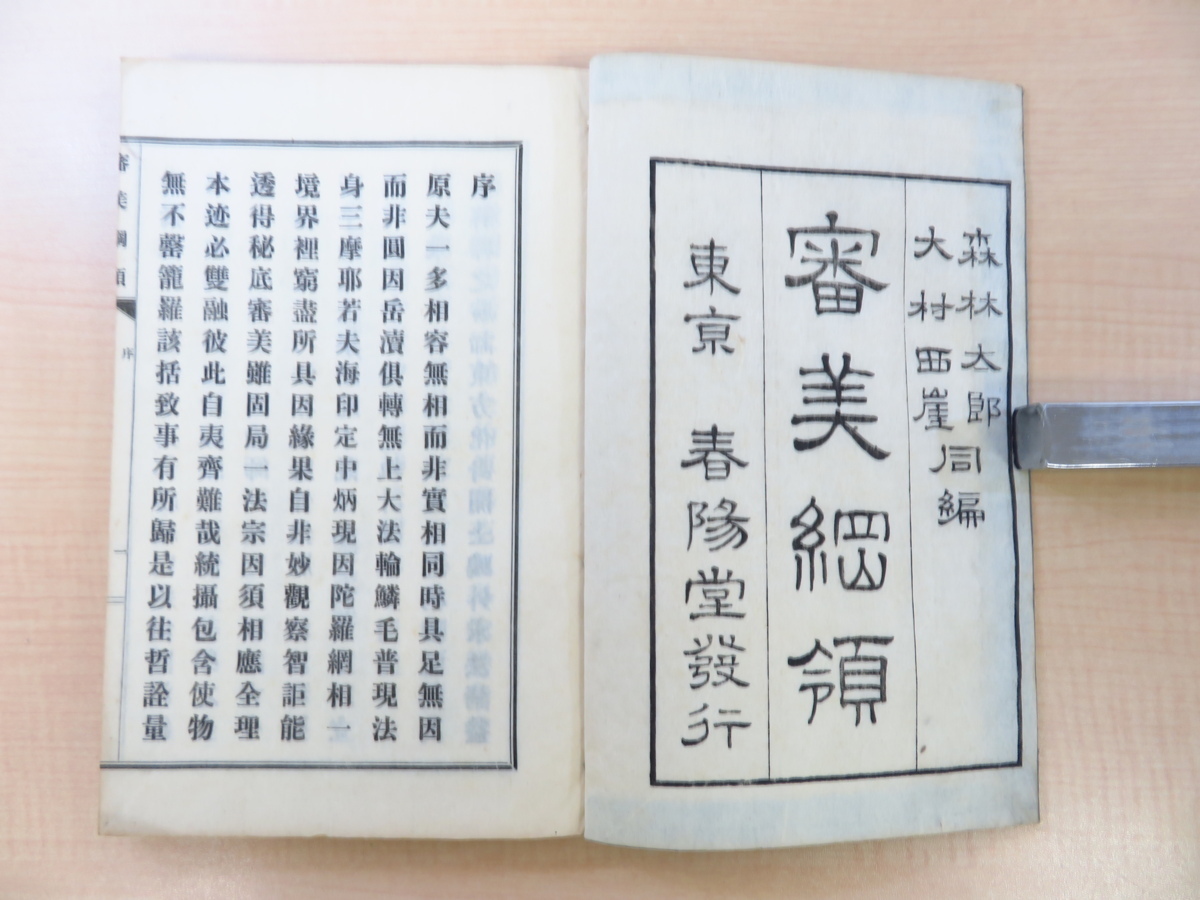 森林太郎
大村西崖
同編
審美綱領
東京 春陽堂發行
序
原夫一多相容無相而非實相同時具足無因
而非圓因岳瀆俱轉無上大法輪鱗毛普現法
身三摩耶若夫海印定中炳現因陀羅網相一
境界裡窮盡所具因緣果自非妙觀察智詎能
透得秘底審美雖固局一法宗因須相應全理
本迹必雙融彼此自夷齊難哉統攝包含使物
無不罄籠羅該括致事有所歸是以往哲詮量
審美綱領
序